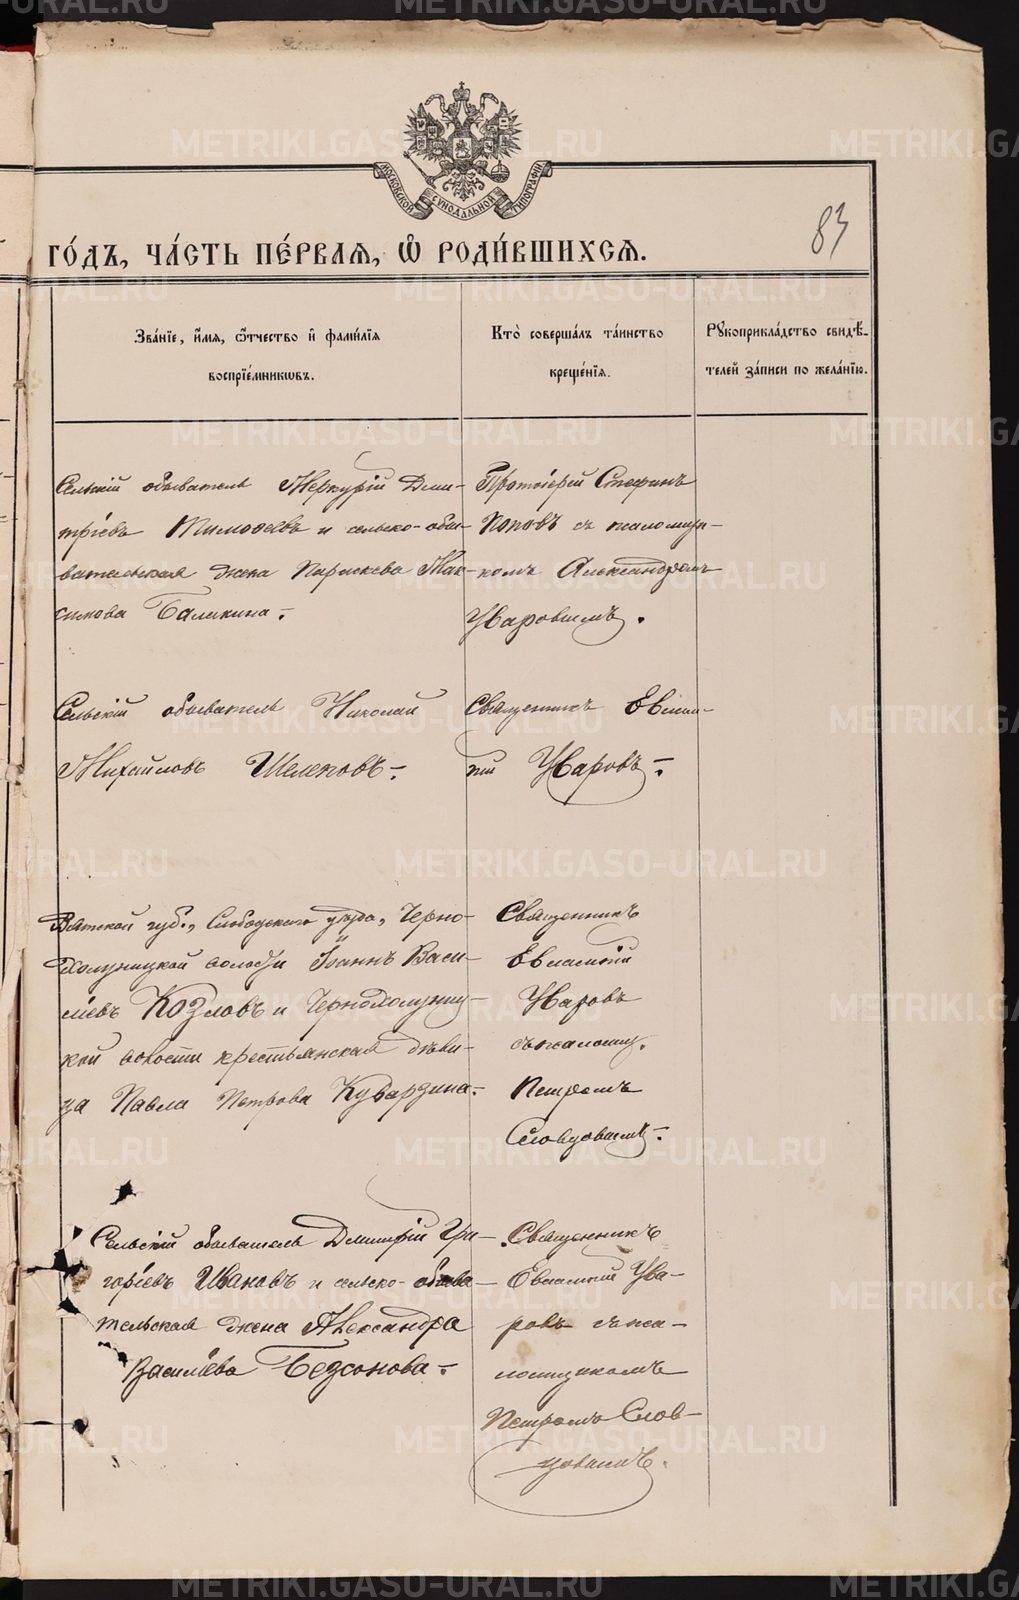 МОСКОВСКОЙ СѴНОДАЛЬНОЙ ТИПОГРАФІИ
83
ГО́ДЪ, ЧА́СТЬ ПЕ́РВАЯ, Ѡ҆ РОДИ́ВШИХСЯ.
Зва́нїе, и҆́мя, ѻ҆́тчество и҆ фами́лїя
воспрїе́мникωвъ.
Кто̀ соверша́лъ та́инство
креще́нїя.
Рꙋкоприкла́дство свидѣ́-
телей за́писи по жела́нїю.
Сельскій обыватель Меркурій Дми-
тріевъ Тимоѳеевъ и сельско-обы-
вательская жена Параскева Мак-
симова Балакина.
Протоіерей Стефанъ
Поповъ съ псаломщи-
комъ Александромъ
Уваровымъ.
Сельскій обыватель Николай
Михайловъ Шелеповъ.
Священникъ Евлам-
пій Уваровъ.
Вятской губ., Слободского уѣзда, Черно-
холуницкой волости Іоаннъ Васи-
ліевъ Козловъ и Чернохолуниц-
кой волости крестьянская дѣви-
ца Павла Петрова Кувардина.
Священникъ
Евлампій
Уваровъ
съ псаломщ.
Петромъ
Словцовымъ.
Сельскій обыватель Димитрій Гри-
горіевъ Ивановъ и сельско-обыва-
тельская жена Александра
Василіева Безсонова.
Священникъ
Евлампій Ува-
ровъ съ пса-
ломщикомъ
Петромъ Слов-
цовымъ.
METRIKI.GASO-URAL.RU